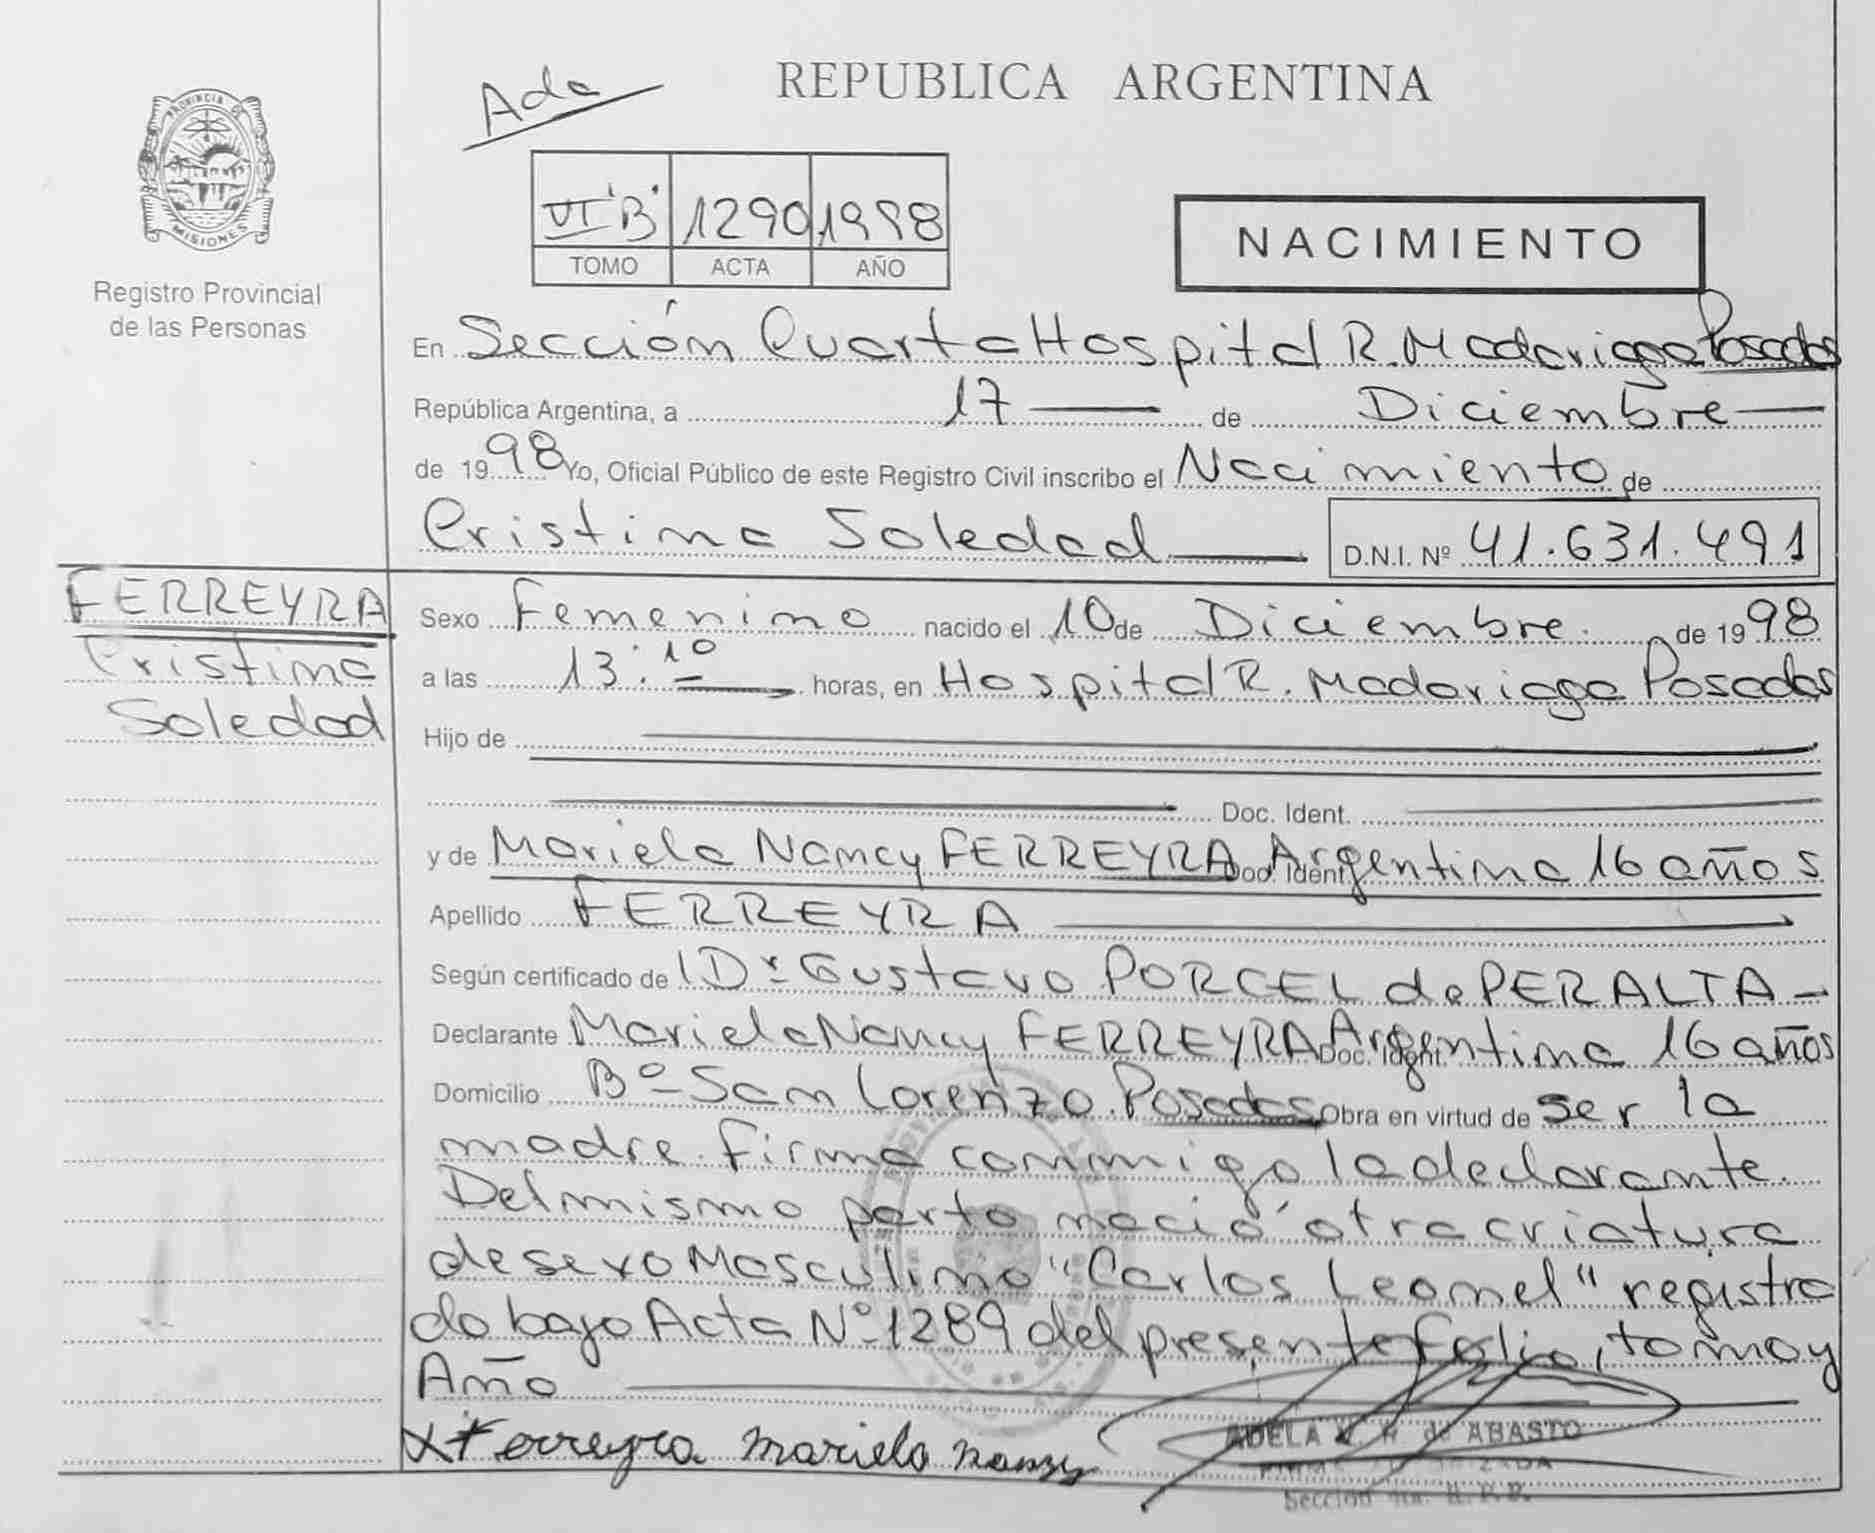 Ada
REPUBLICA ARGENTINA
PROVINCIA DE
MISIONES
Registro Provincial
de las Personas
VI "B" 1290 1998
TOMO ACTA AÑO
NACIMIENTO
En Sección Cuarta Hospital R. Madariaga Posadas
República Argentina, a 17 de Diciembre
de 1998 Yo, Oficial Público de este Registro Civil inscribo el Nacimiento de
Cristina Soledad D.N.I. Nº 41.631.491
FERREYRA
Cristina
Soledad
Sexo Femenino nacido el 10 de Diciembre de 1998
a las 13:10 horas, en Hospital R. Madariaga Posadas
Hijo de
Doc. Ident.
y de Mariela Nancy FERREYRA Doc. Ident. Argentina 16 años
Apellido FERREYRA
Según certificado de Dr Gustavo PORCEL de PERALTA
Declarante Mariela Nancy FERREYRA Doc. Ident. Argentina 16 años
Domicilio Bº San Lorenzo Posadas Obra en virtud de ser la
madre. firma conmigo la declarante.
Del mismo parto nació otra criatura
de sexo Masculino "Carlos Leonel" registra
do bajo Acta Nº 1289 del presente folio, tomo y
Año
x Ferreyra mariela nancy
ADELA de ABASTO
Sección